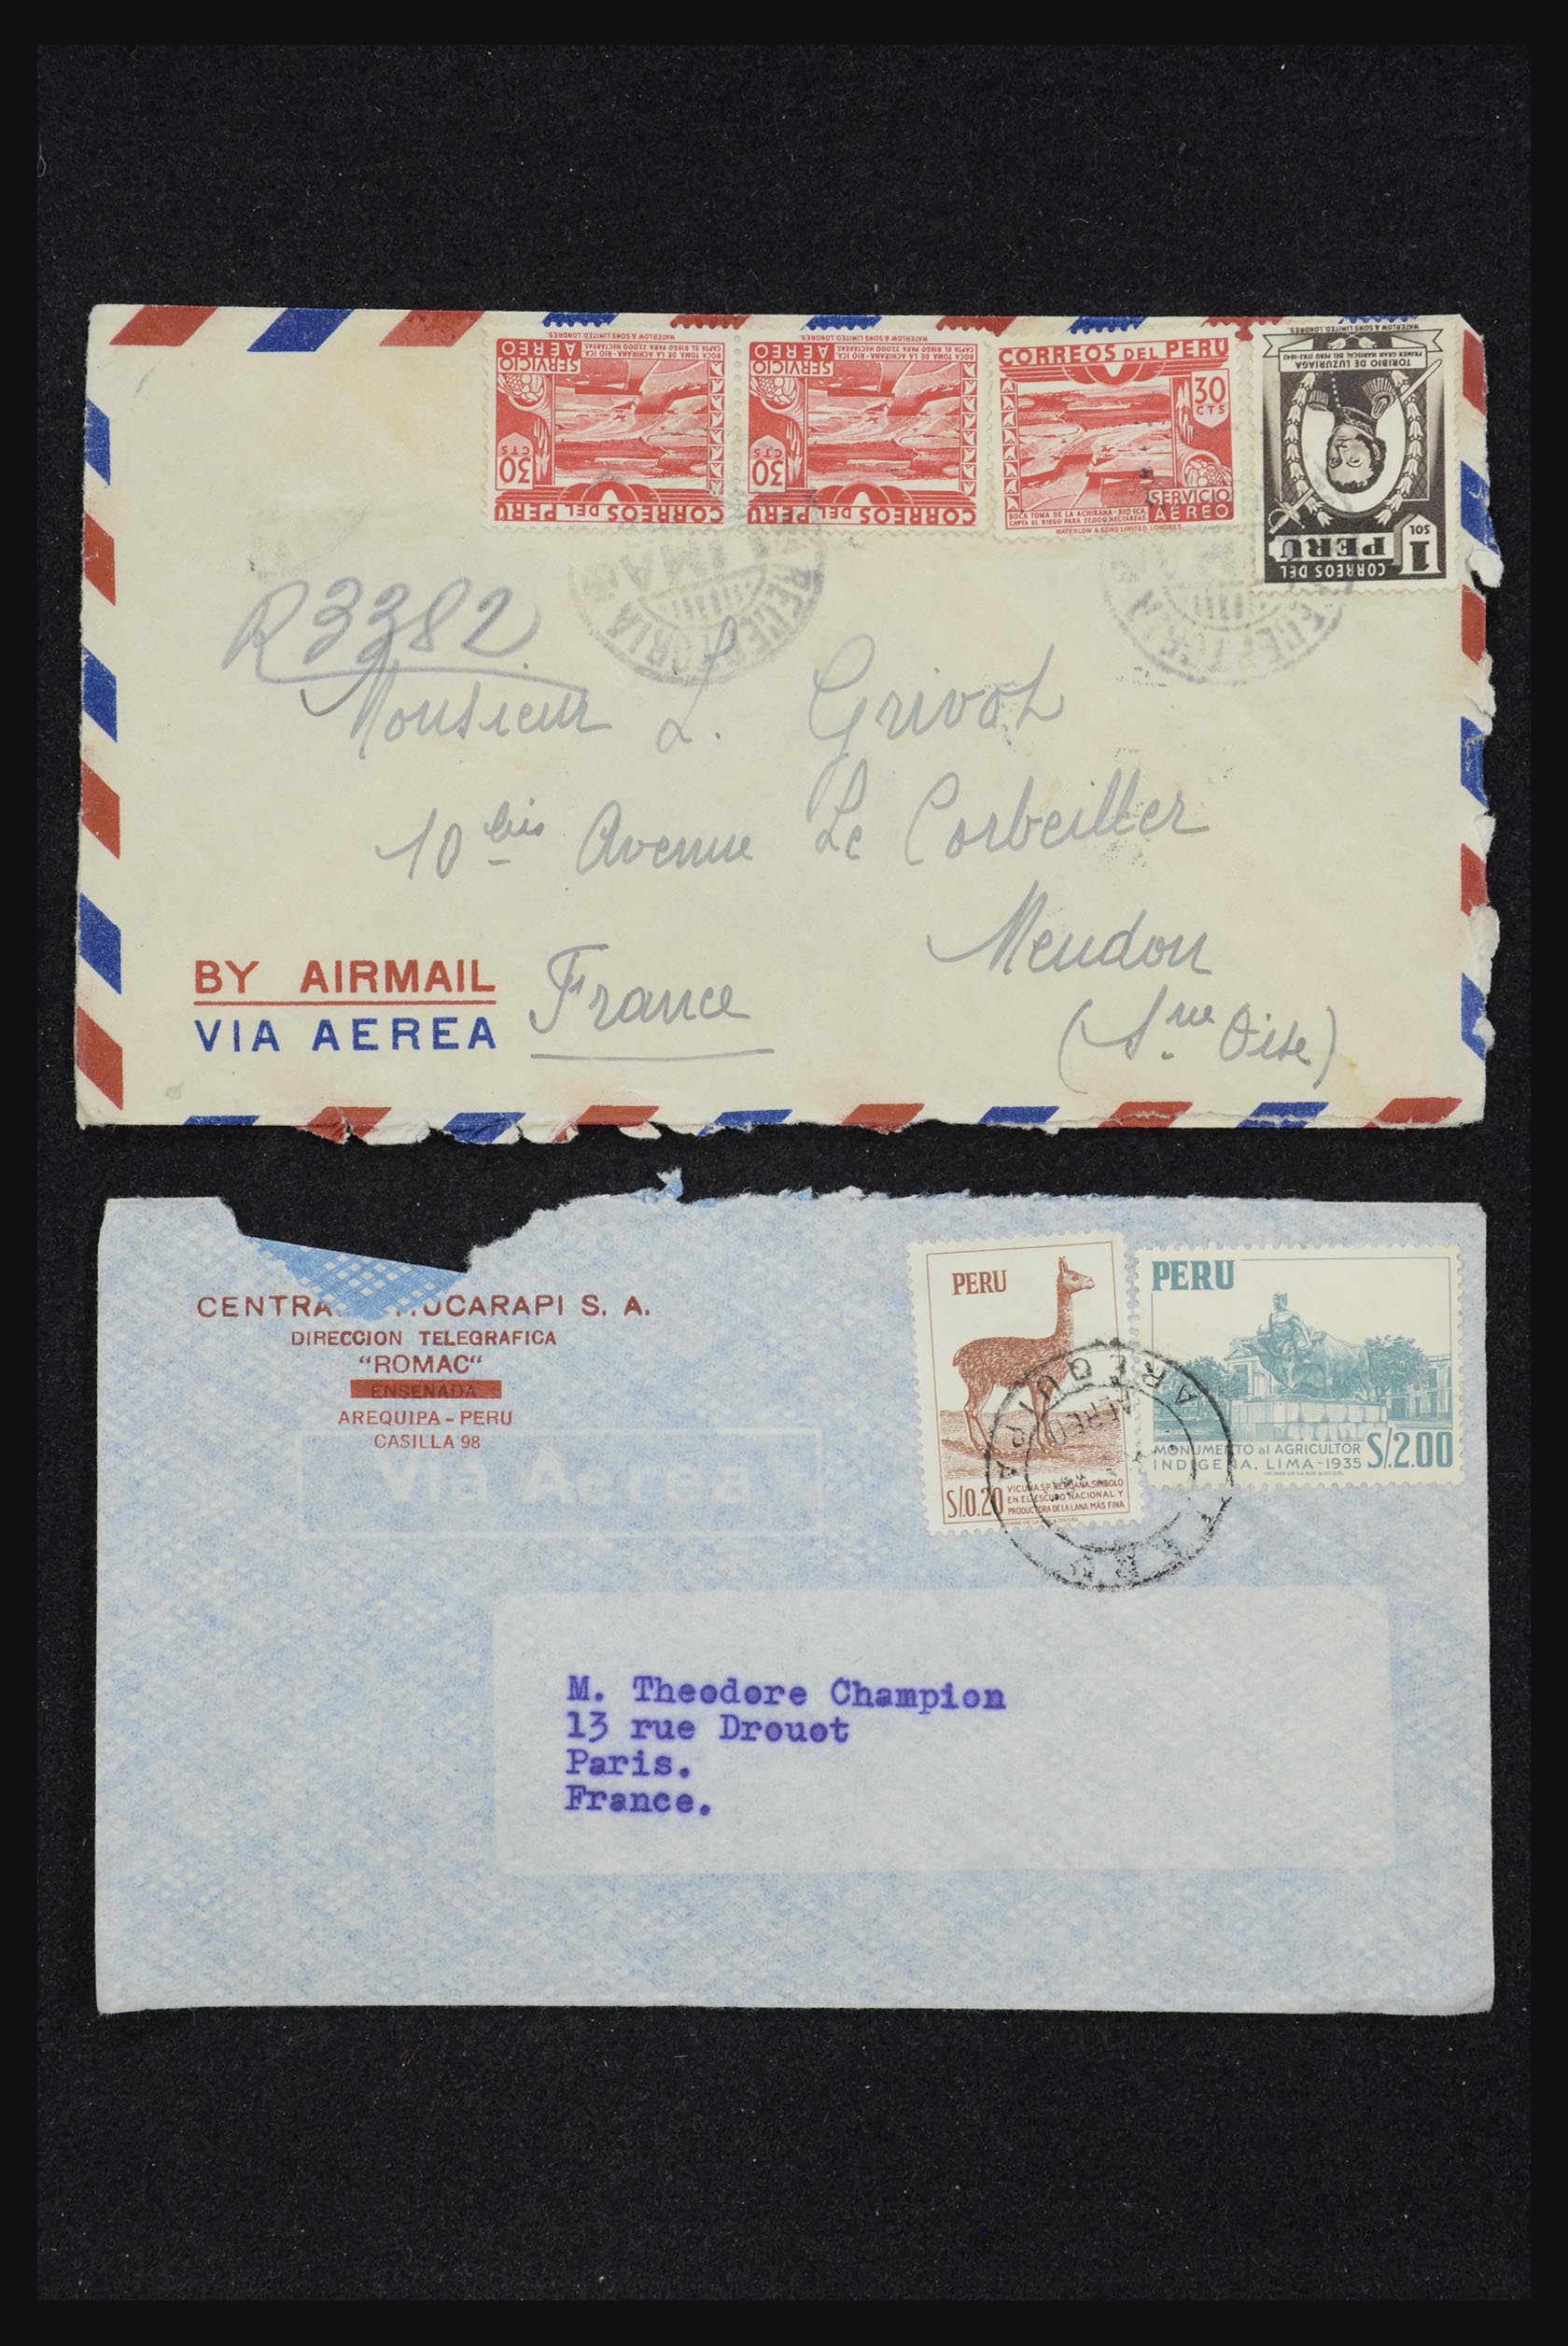 WATERLOW & SONS LIMITED, LONDRES.
BOCA TOMA DE LA ACHIRANA - RIO ICA
CAPTA EL RIEGO PARA 27,000 HECTAREAS
SERVICIO AEREO
30 CTS
CORREOS DEL PERU
WATERLOW & SONS LIMITED, LONDRES.
BOCA TOMA DE LA ACHIRANA - RIO ICA
CAPTA EL RIEGO PARA 27,000 HECTAREAS
SERVICIO AEREO
30 CTS
CORREOS DEL PERU
CORREOS DEL PERU
30 CTS
SERVICIO AEREO
BOCA TOMA DE LA ACHIRANA - RIO ICA
CAPTA EL RIEGO PARA 27,000 HECTAREAS
WATERLOW & SONS LIMITED, LONDRES.
WATERLOW & SONS LIMITED, LONDRES.
PRIMER GRAN MARISCAL DEL PERU 1782-1842
TORIBIO DE LUZURIAGA
1 SOL
PERU
CORREOS DEL
LIMA
R3382
Monsieur L. Grivot
10 bis Avenue Le Corbeiller
Meudon
(S.ne Oise)
France
BY AIRMAIL
VIA AEREA
CENTRA UCARAPI S. A.
DIRECCION TELEGRAFICA
"ROMAC"
ENSENADA
AREQUIPA - PERU
CASILLA 98
PERU
S/.0.20
VICUÑA, SP. PERUANA, SIMBOLO
EN EL ESCUDO NACIONAL Y
PRODUCTORA DE LA LANA MÁS FINA
PERU
MONUMENTO al AGRICULTOR
INDIGENA. LIMA-1935
S/.2.00
AREQUIPA
AEREO
PERU
M. Theodore Champion
13 rue Drouot
Paris.
France.